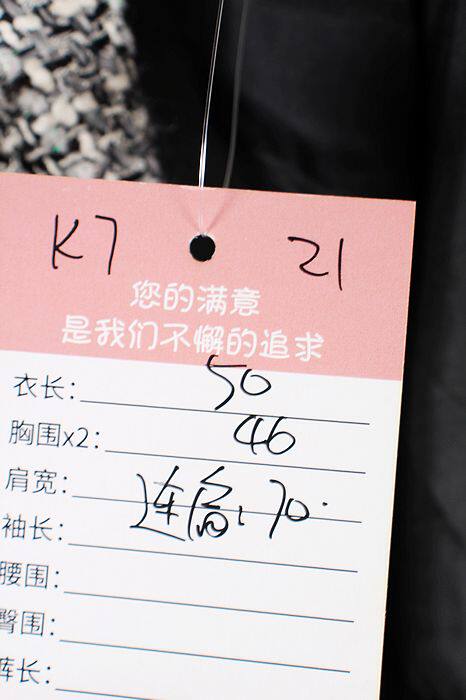 K7 21
您的满意
是我们不懈的追求
衣长: 50
胸围x2: 46
肩宽:
连肩: 70.
袖长:
腰围:
臀围:
裤长: